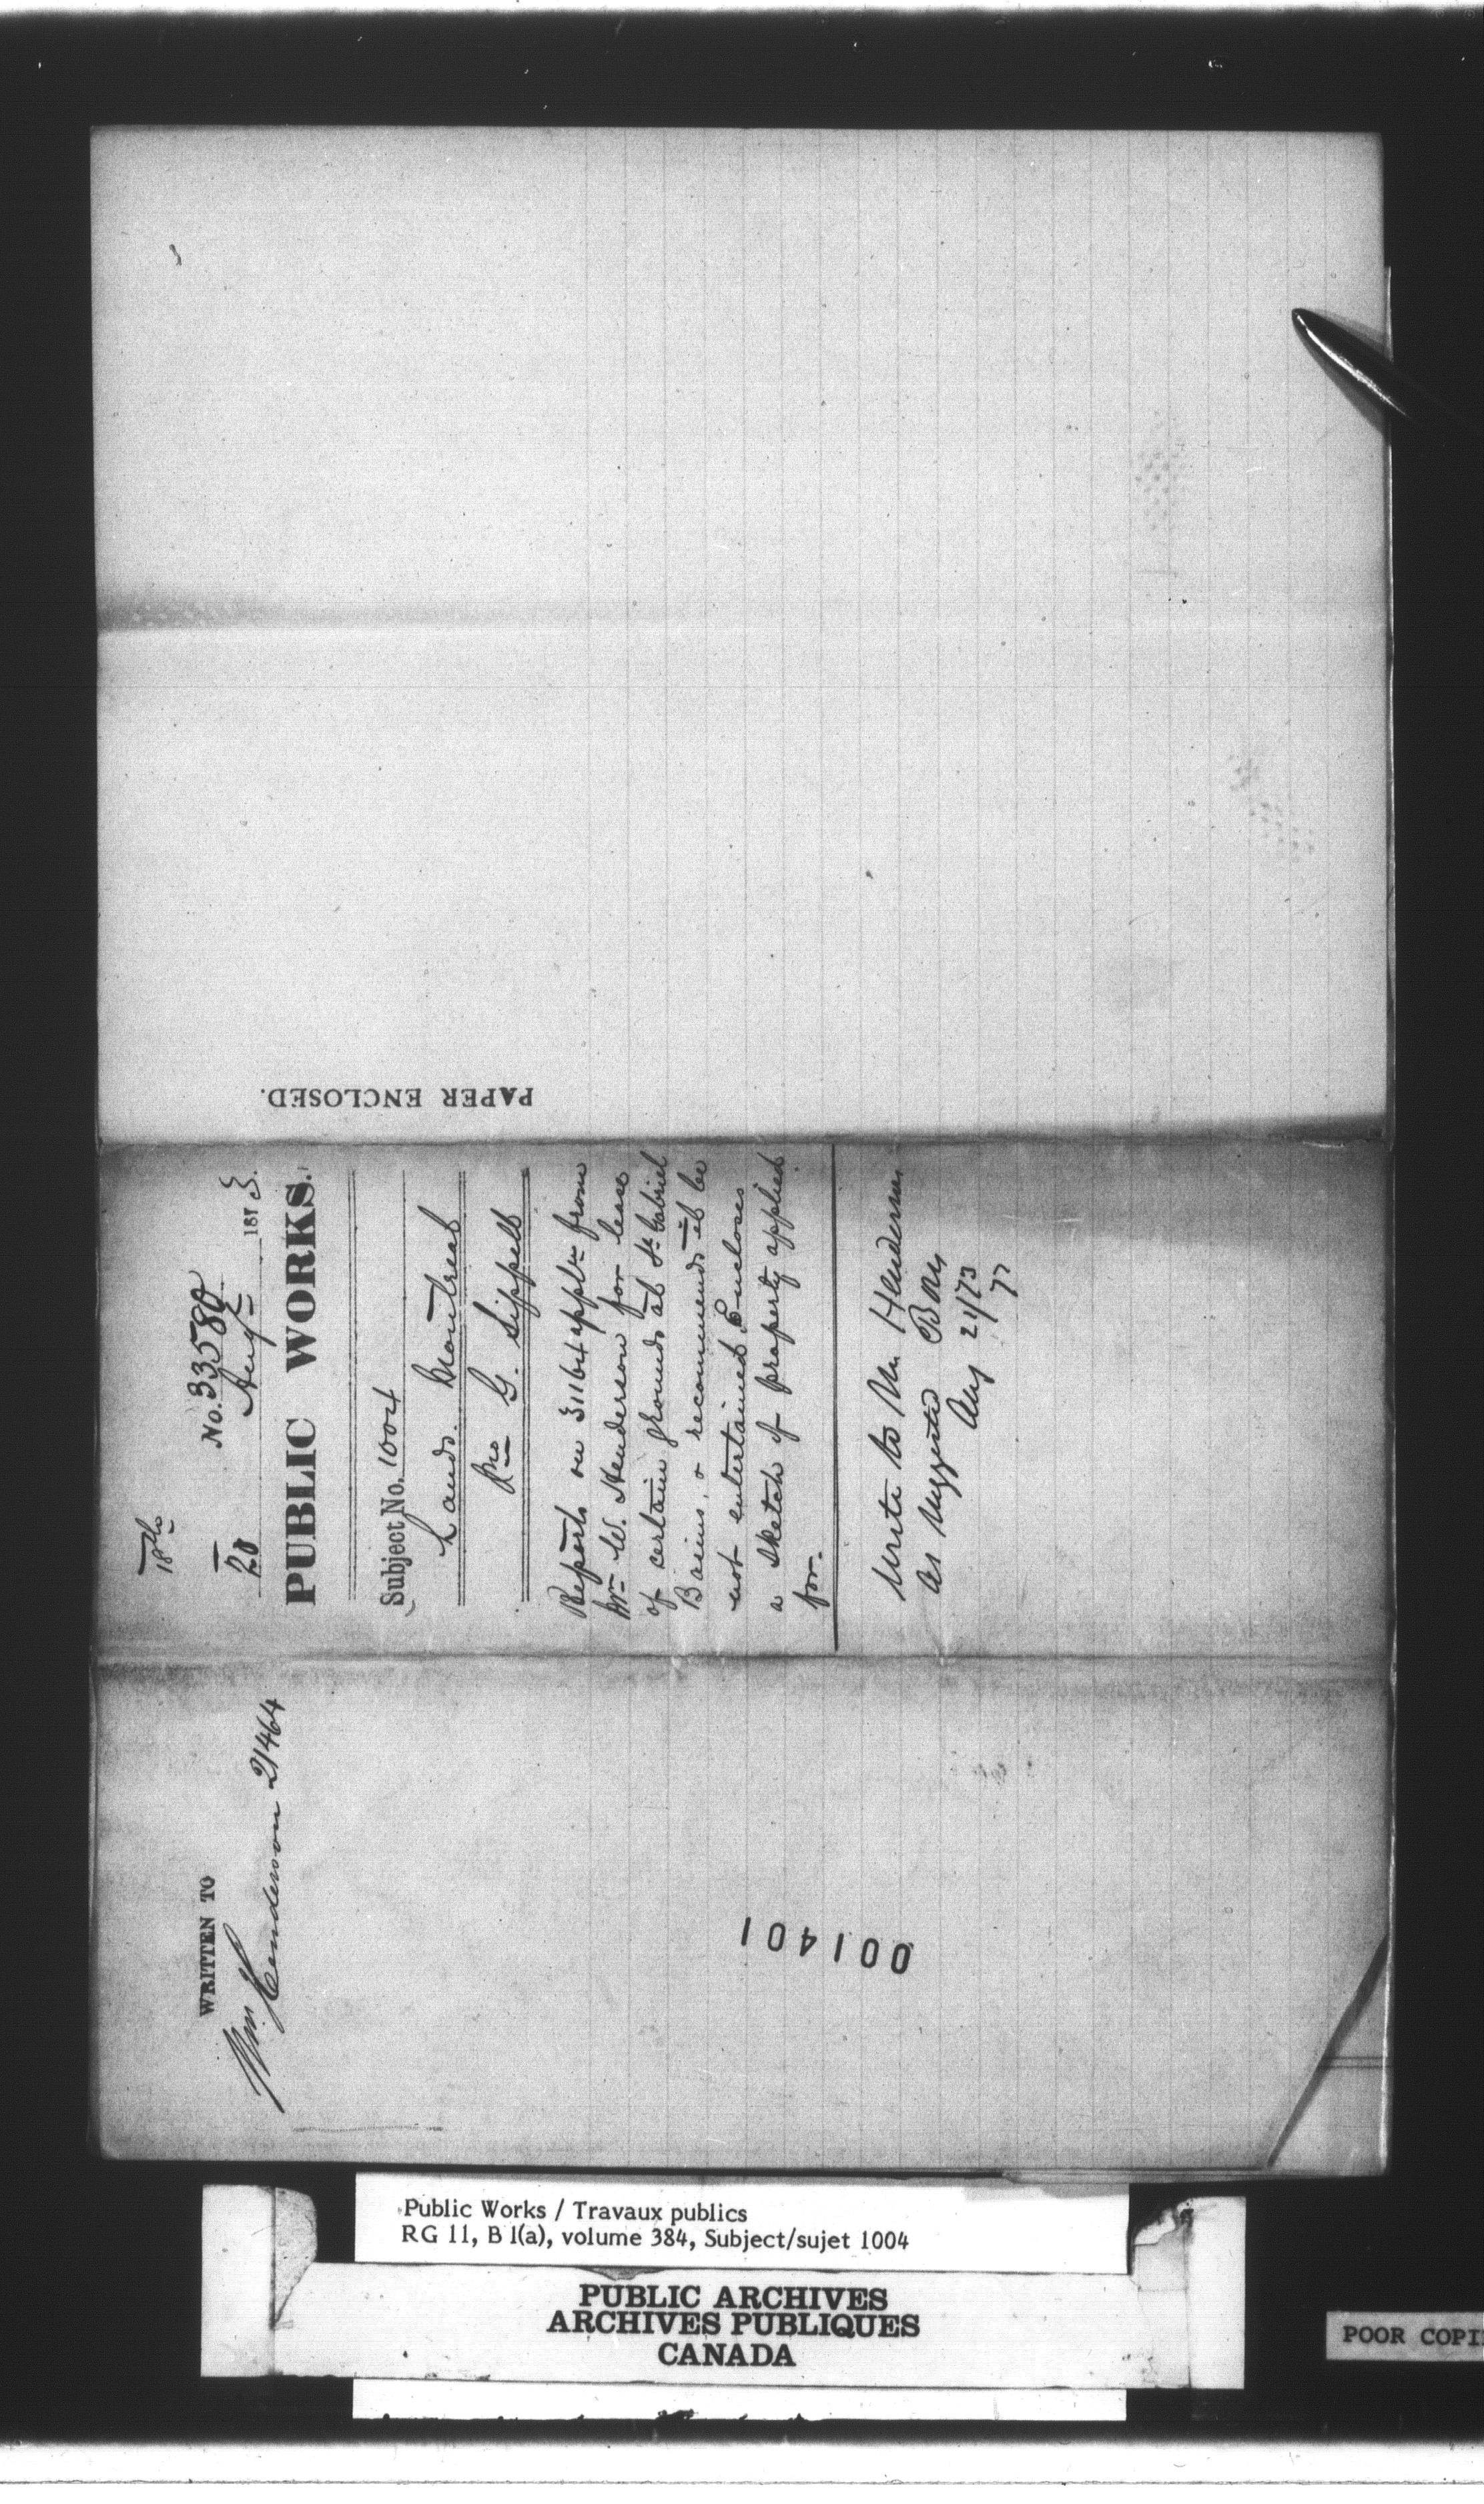 18th
No. 33580
20 Augt 1873.
PUBLIC WORKS.
Subject No. 1004
Lands. Montreal
Jno G. Sippell
Reports on 31164 appln from
Mr W. Henderson for lease
of certain grounds at St Gabriel
Basins, & recommends it be
not entertained. Encloses
a sketch of property applied
for.
Write to Mr Henderson
as suggested
Aug 21/73
PAPER ENCLOSED.
WRITTEN TO
Wm Henderson 21464
001401
Public Works / Travaux publics
RG 11, B 1(a), volume 384, Subject/sujet 1004
PUBLIC ARCHIVES
ARCHIVES PUBLIQUES
CANADA
POOR COPI